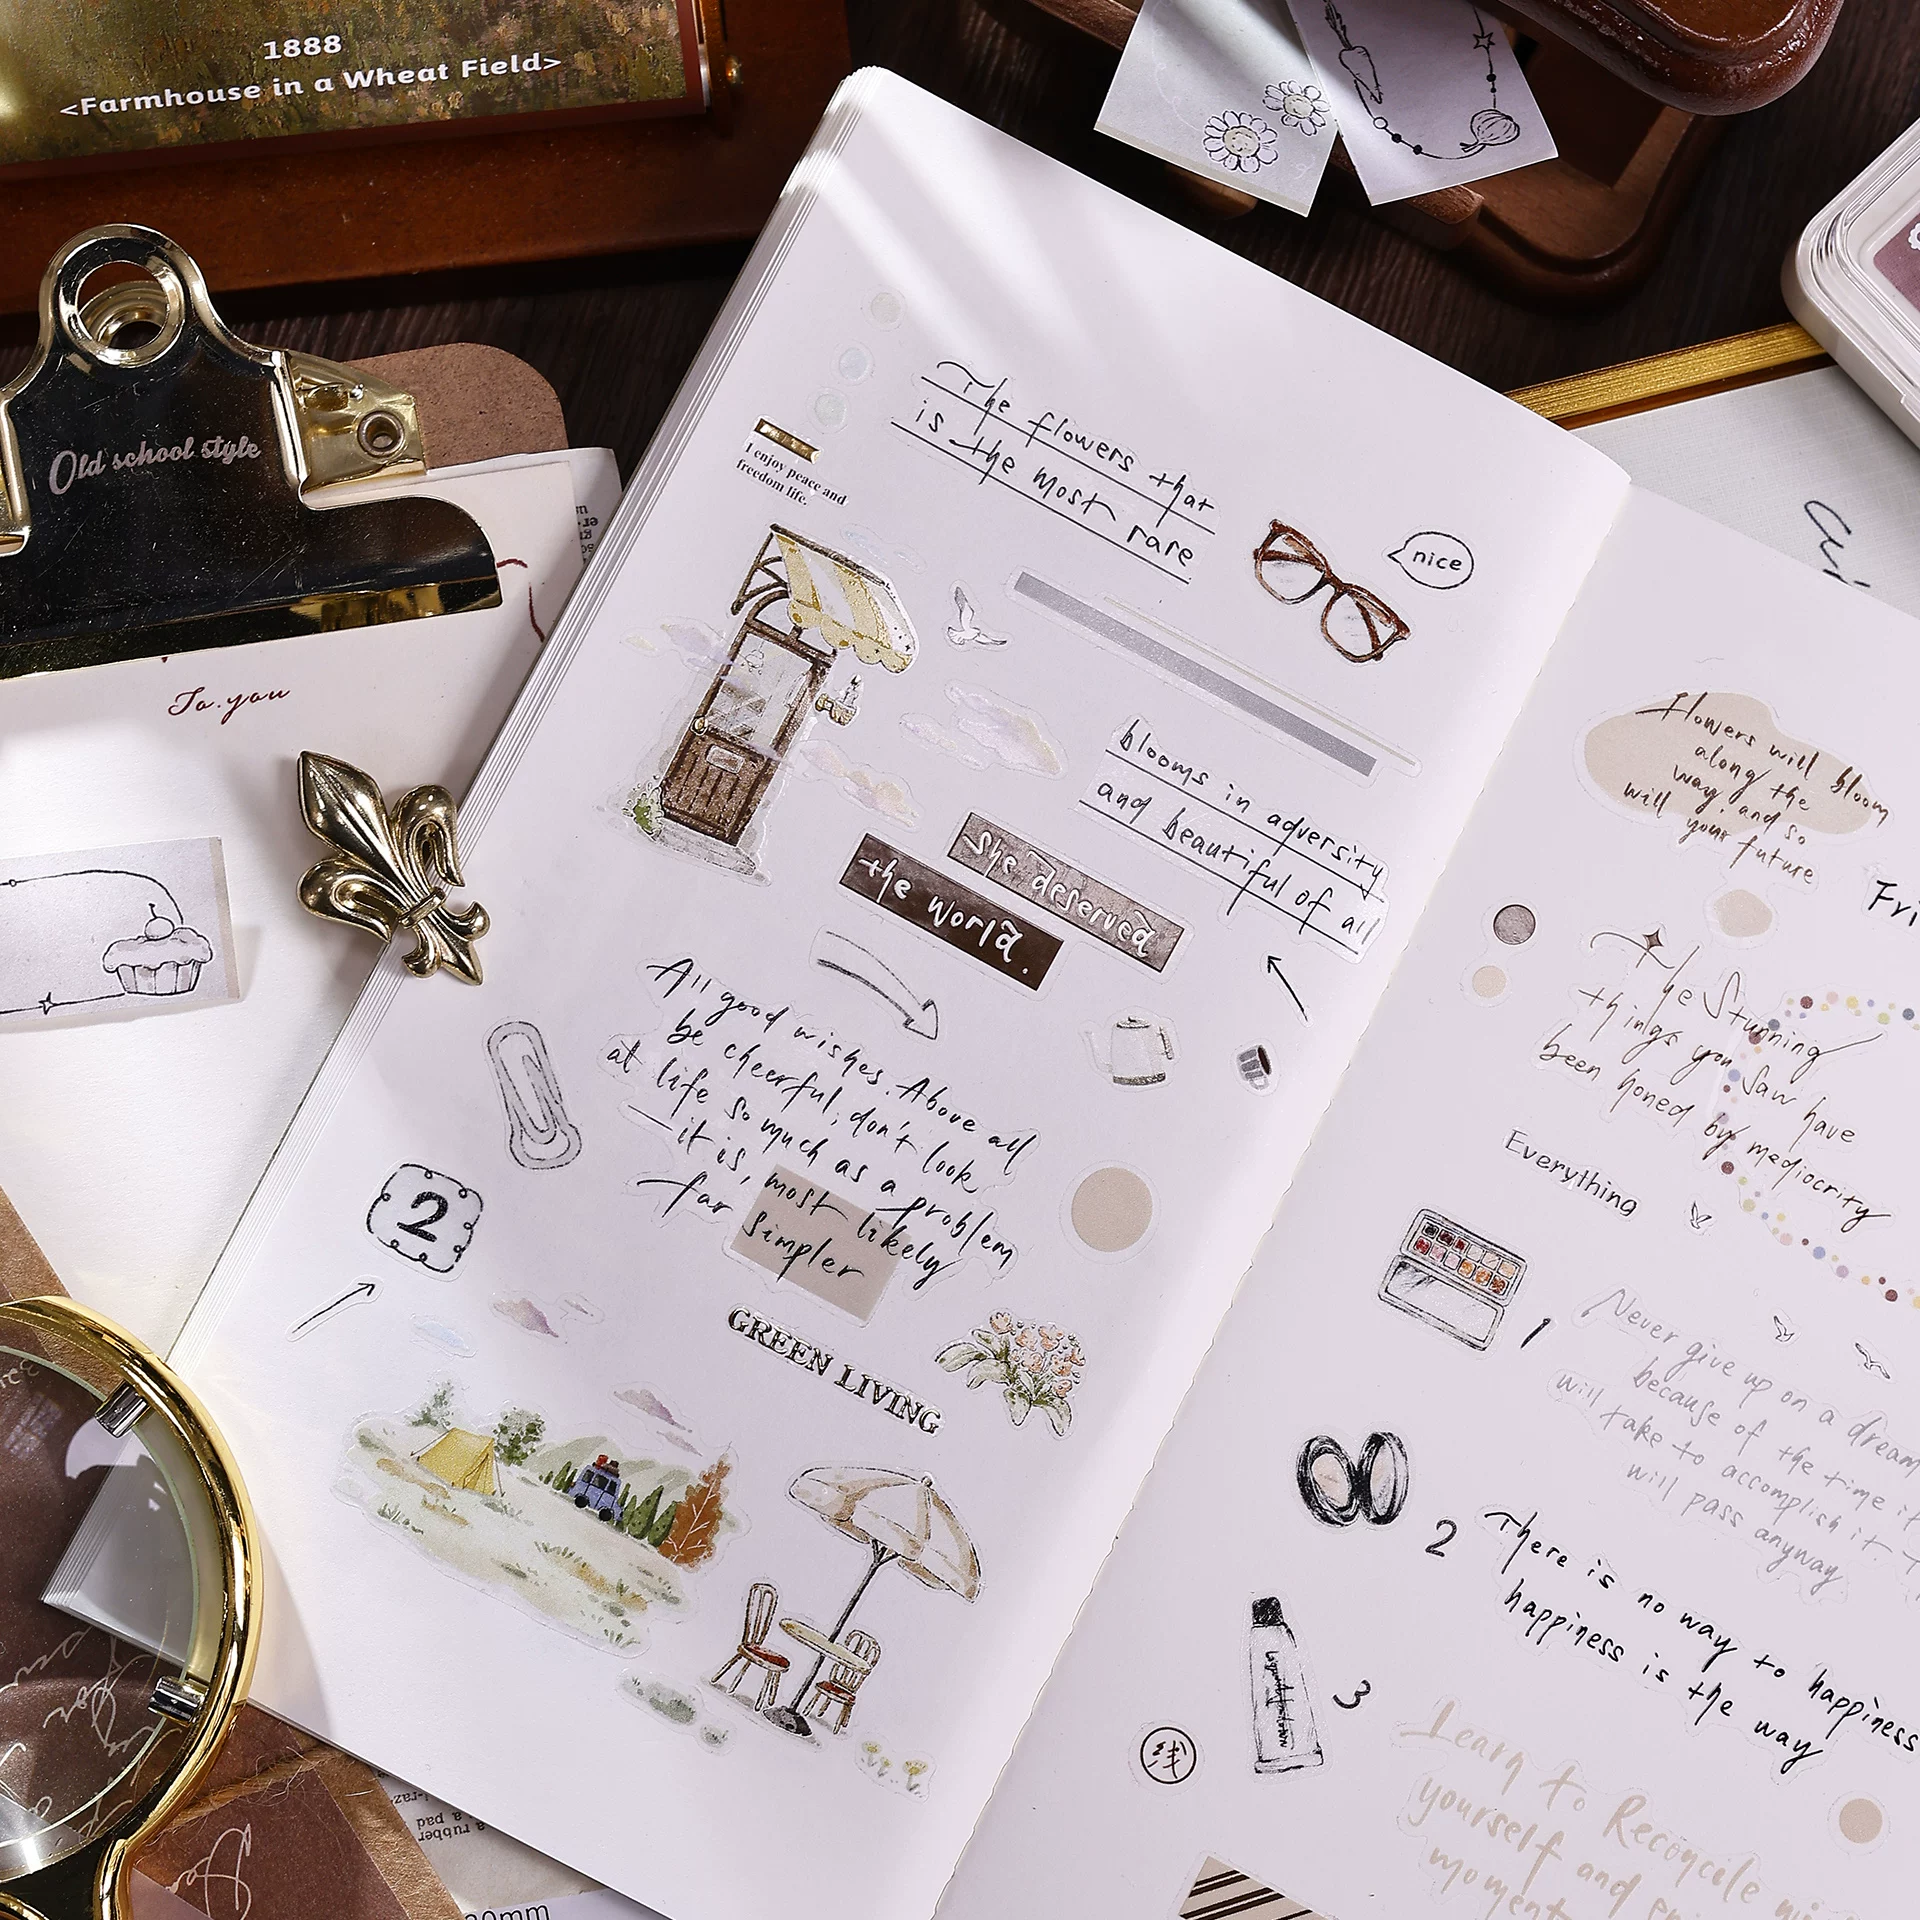 1888
<Farmhouse in a Wheat Field>
Old school style
To.you
I enjoy peace and
freedom life.
The flowers that
is the most rare
nice
blooms in adversity
and beautiful of all
She deserved
the world.
All good wishes. Above all
be cheerful, don't look
at life so much as a problem
-it is, most likely
far simpler
2
GREEN LIVING
Flowers will bloom
along the
way, and so
will your future
Fri
The Stunning
things you saw have
been honed by mediocrity
Everything
1
Never give up on a dream
because of the time it
will take to accomplish it. T
will pass anyway.
2
There is no way to happiness
happiness is the way
3
Learn to Reconcile
yourself and
moment
a rubber
pad